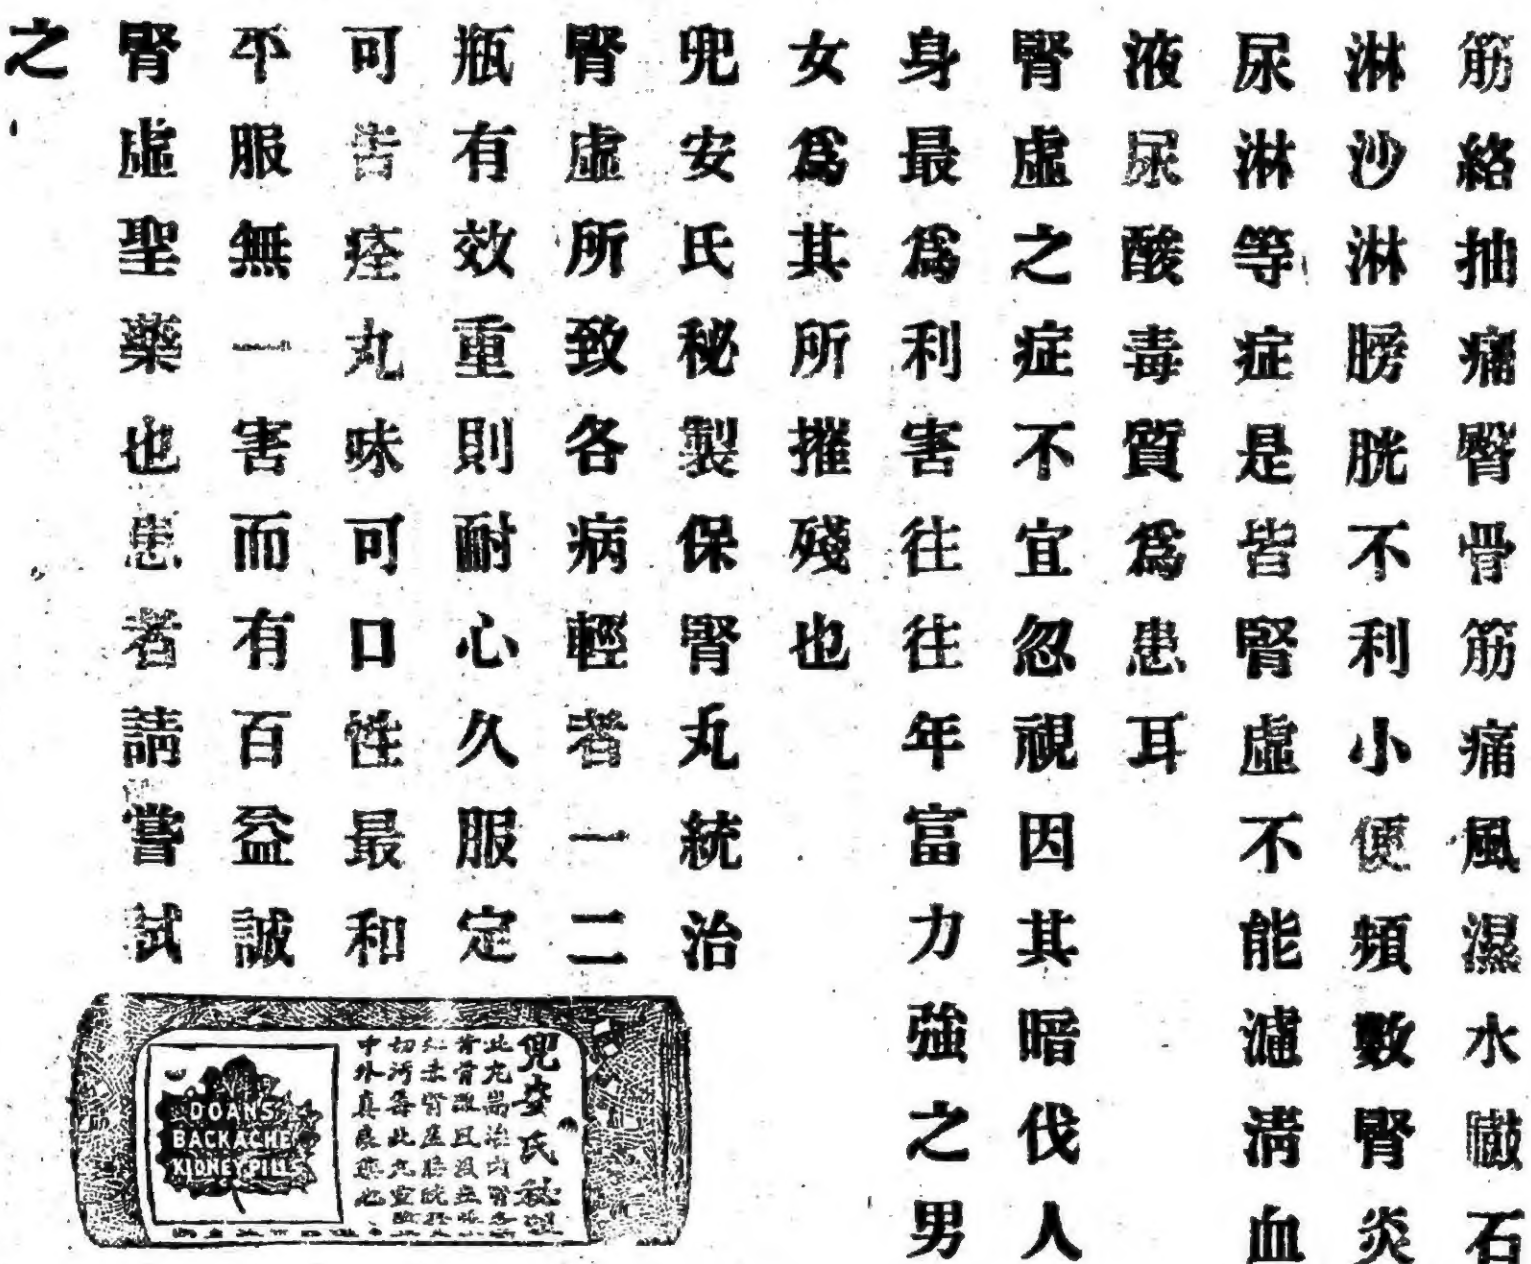 筋絡抽痛臀骨筋痛風濕水臌石
淋沙淋膀胱不利小便頻數腎炎
尿淋等症是皆腎虛不能濾淸血
液尿酸毒質爲患耳
腎虛之症不宜忽視因其暗伐人
身最爲利害往往年富力強之男
女爲其所摧殘也
兜安氏秘製保腎丸統治
腎虛所致各病輕者一二
瓶有效重則耐心久服定
可皆痊丸味可口性最和
平服無一害而有百益誠
腎虛聖藥也患者請嘗試
之
兜安氏秘
DOAN'S
BACKACHE
KIDNEY PILLS